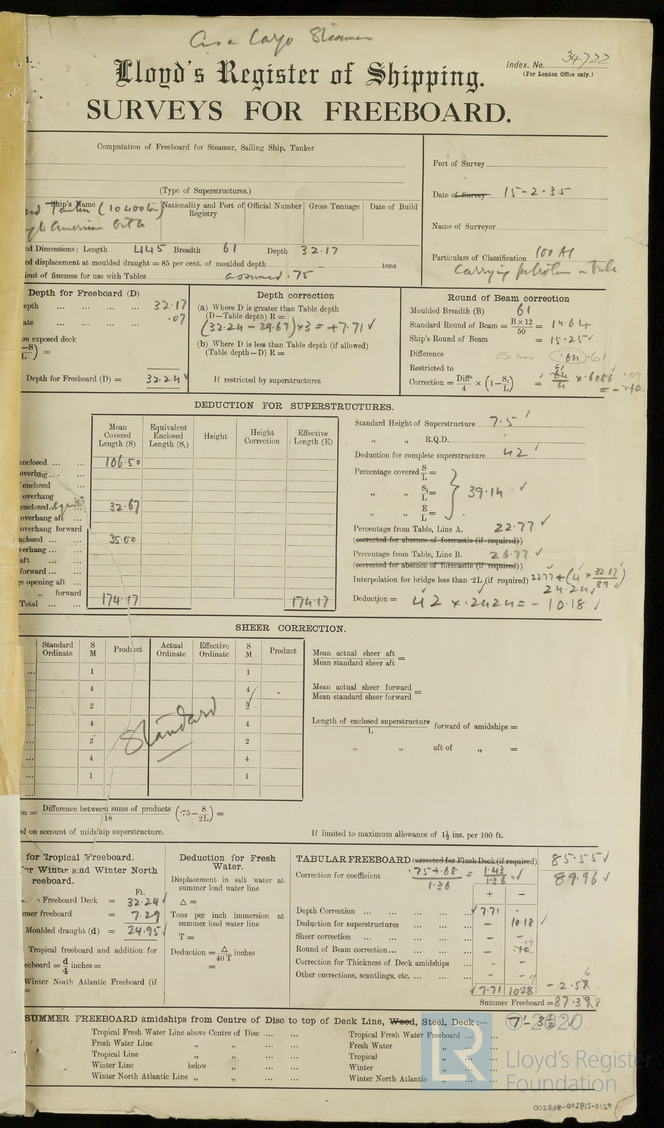 As a Cargo Steamer
Index. No. 34722
(For London Office only.)
Lloyd's Register of Shipping.
SURVEYS FOR FREEBOARD.
Computation of Freeboard for Steamer, Sailing Ship, Tanker
Port of Survey
(Type of Superstructures.)
Date of Survey 15-2-35
Ship's Name Nationality and Port of Registry Official Number Gross Tonnage Date of Build
Tanker (10400
American
Name of Surveyor
ed Dimensions: Length 445 Breadth 61 Depth 32.17
Particulars of Classification 100 A1
ed displacement at moulded draught = 85 per cent. of moulded depth tons
Carrying petroleum in bulk
ient of fineness for use with Tables assumed .75
Depth for Freeboard (D)
epth ... ... ... 32.17
ate ... ... .07
on exposed deck
Depth for Freeboard (D) = 32.24
Depth correction
(a) Where D is greater than Table depth
(D—Table depth) R =
(32.24 - 29.67) x 3 = + 7.71
(b) Where D is less than Table depth (if allowed)
(Table depth—D) R =
If restricted by superstructures
Round of Beam correction
Moulded Breadth (B) 61
Standard Round of Beam = B × 12 / 50 = 14.64
Ship's Round of Beam = 15.25
Difference .61
Restricted to
Correction = Diff / 4 × (1 − S1 / L) = × .6086
DEDUCTION FOR SUPERSTRUCTURES.
Mean Covered Length (S) Equivalent Enclosed Length (S1) Height Height Correction Effective Length (E)
enclosed ... ... 106.50
overhang ...
enclosed
overhang
enclosed 32.67
overhang aft ...
overhang forward
nclosed ... ... 35.00
verhang ... ...
aft
forward ... ...
ge opening aft ...
„ forward
Total ... ... 174.17 174.17
Standard Height of Superstructure 7.5
„ „ R.Q.D.
Deduction for complete superstructure 42
Percentage covered S / L =
„ „ S1 / L = 39.14
„ „ E / L =
Percentage from Table, Line A. 22.77
(corrected for absence of forecastle (if required))
Percentage from Table, Line B. 26.77
(corrected for absence of forecastle (if required))
Interpolation for bridge less than ·2L (if required) 22.77 + (4 x 32.67 / 89)
24.24
Deduction = 42 x .2424 = - 10.18
SHEER CORRECTION.
Standard Ordinate S M Product Actual Ordinate Effective Ordinate S M Product
1 1
4 4
2 2
4 4
2 2
4 4
1 1
Standard
Mean actual sheer aft / Mean standard sheer aft =
Mean actual sheer forward / Mean standard sheer forward =
Length of enclosed superstructure / L forward of amidships =
„ „ aft of „ =
on = Difference between sums of products / 18 (·75 − S / 2L) =
d on account of midship superstructure.
If limited to maximum allowance of 1½ ins. per 100 ft.
for Tropical Freeboard.
or Winter and Winter North
reeboard.
Ft.
Freeboard Deck = 32.24
mer freeboard = 7.29
Moulded draught (d) = 24.95
Tropical freeboard and addition for
eeboard = d / 4 inches =
Winter North Atlantic Freeboard (if
=
Deduction for Fresh Water.
Displacement in salt water at summer load water line
Δ =
Tons per inch immersion at summer load water line
T =
Deduction = Δ / 40 T inches
=
TABULAR FREEBOARD corrected for Flush Deck (if required) 85.55
Correction for coefficient .75 + .68 / 1.36 = 1.43 / 1.36 89.96
+ −
Depth Correction ... ... ... 7.71 -
Deduction for superstructures ... - 10.18
Sheer correction ... ... ... - -
Round of Beam correction ... ... -
Correction for Thickness of Deck amidships - -
Other corrections, scantlings, etc. ... ... - -
7.71 10.28
Summer Freeboard =
SUMMER FREEBOARD amidships from Centre of Disc to top of Deck Line, Wood, Steel, Deck :— 7'- 3½
Tropical Fresh Water Line above Centre of Disc ... ... Tropical Fresh Water Freeboard ...
Fresh Water Line „ „ ... ... Fresh Water „
Tropical Line „ „ ... ... Tropical
Winter Line below „ ... ... Winter
Winter North Atlantic Line „ „ ... ... Winter North Atlantic
©2020
LR
Lloyd's Register
Foundation
002808-002815-0129